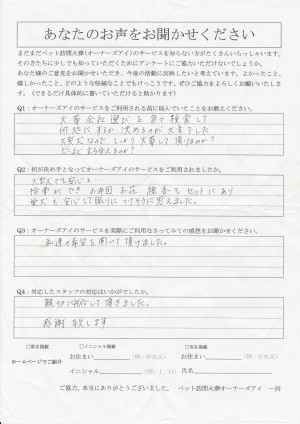 あなたのお声をお聞かせください
まだまだペット訪問火葬(オーナーズアイ)のサービスを知らない方がたくさんいらっしゃいます。
その方たちに少しでも知っていただくためにアンケートにご協力いただけないでしょうか。
あなた様のご意見をお聞かせいただき、今後の活動に反映したいと考えています。よかったこと、
嬉しかったこと、どのような些細なことでもけっこうです。ぜひご協力をよろしくお願いいたします。
(できるだけ具体的に書いていただけると助かります)
Q1:オーナーズアイのサービスをご利用される前に悩んでいたことをお教えください。
火葬会社選びと
何処にするか決めるのが大変でした
大型犬なので しっかり火葬して頂けるのか?
どこまで立ち会えるのか?
Q2:何が決め手となってオーナーズアイのサービスをご利用されましたか。
大型犬でも安心と
拾骨ができ お お花 セットにあり
愛犬も安心して眠りにつけそうに思えました。
Q3:オーナーズアイのサービスを実際にご利用なさってみての感想をお聞かせください。
私達の希望を聞いて頂けました。
Q4:対応したスタッフの対応はいかがでしたか。
親切に対応して頂きました。
感謝致します
□実名掲載 □イニシャル掲載 □匿名掲載
ホームページでご紹介
お住まい
イニシャル
お住まい
氏名
ご協力、本当にありがとうございました。 ペット訪問火葬オーナーズアイ 一同